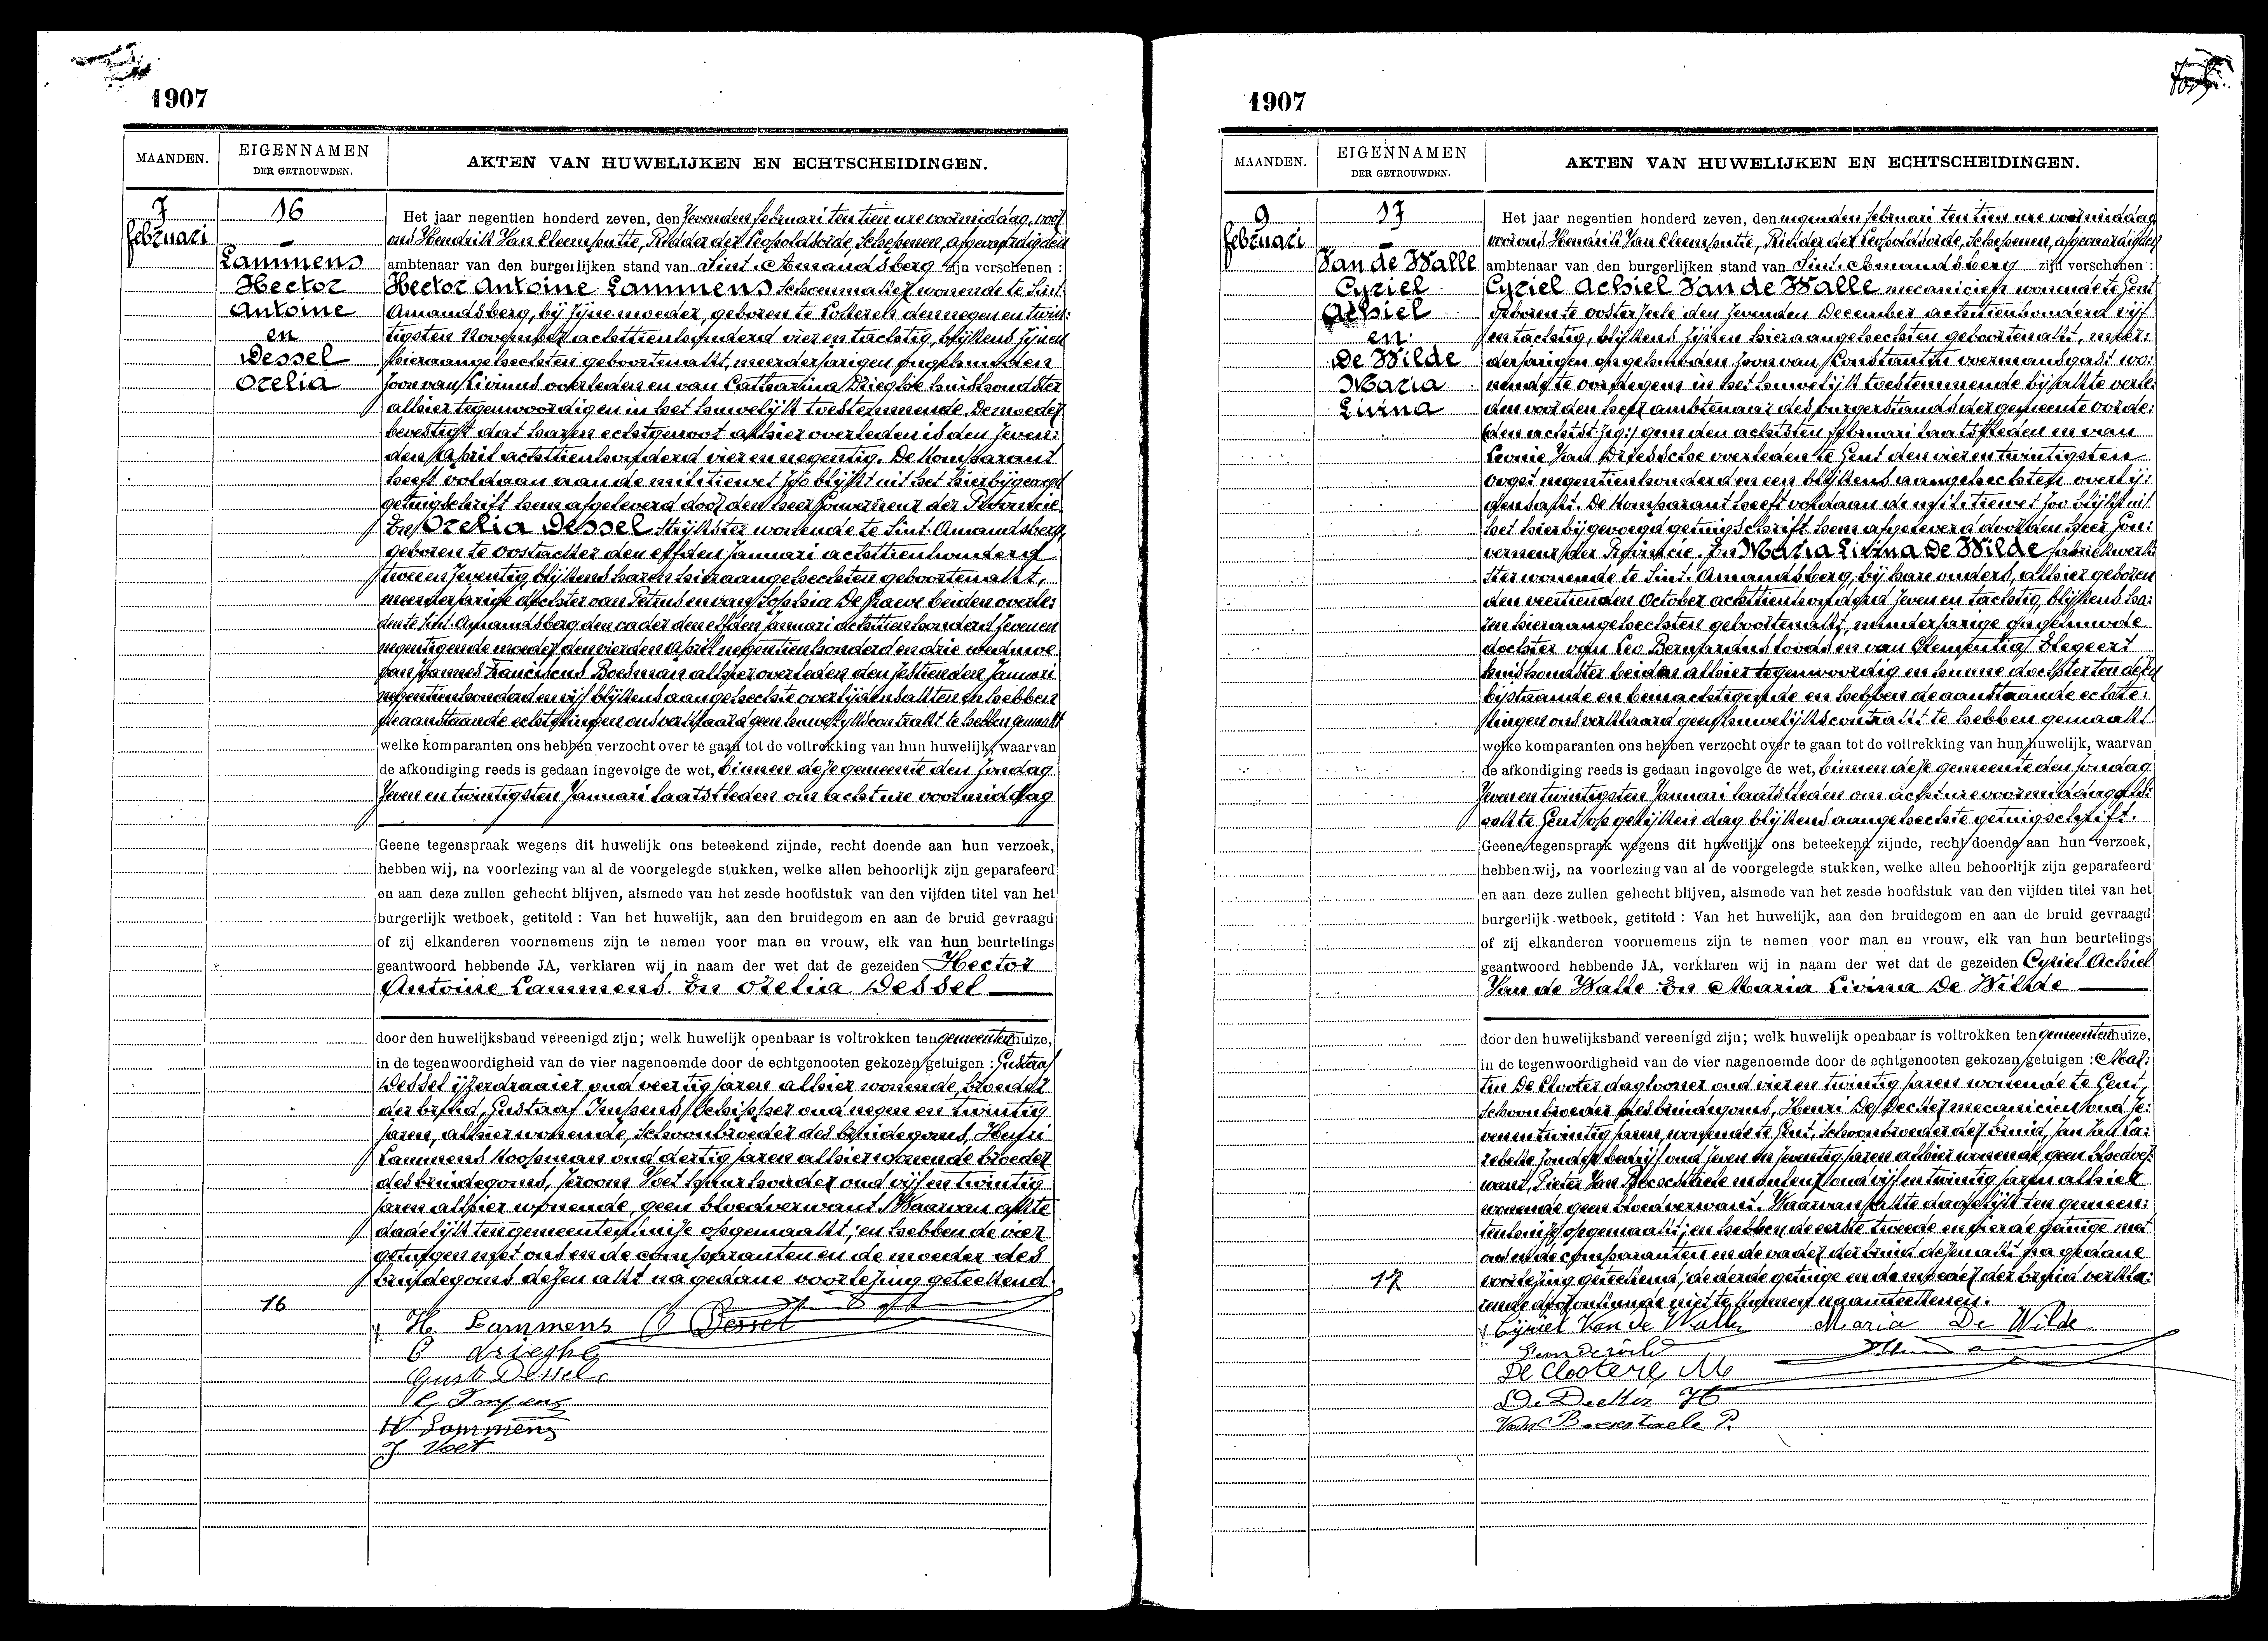 1907
MAANDEN.
EIGENNAMEN
DER GETROUWDEN.
AKTEN VAN HUWELIJKEN EN ECHTSCHEIDINGEN.
7
februari
16
Lammens
Hector
Antoine
en
Dessel
Orelia
Het jaar negentien honderd zeven, den zevenden februari ten tien ure voormiddag, voor
ons Hendrik Van Cleemputte, Ridder der Leopoldsorde, Schepenen, afgevaardigden
ambtenaar van den burgerlijken stand van Sint-Amandsberg zijn verschenen :
Hector Antoine Lammens schoenmaker wonende te Sint
Amandsberg, bij zijne moeder, geboren te Lokeren den negen en twin:
tigsten November achttienhonderd vier en tachtig, blijkens zijnen
hieraangehechten geboortenakt, meerderjarigen ongehuwden
zoon van Livinus overleden en van Catharina Drieghe huishoudster
alhier tegenwoordig en in het huwelijk toestemmende. De moeder
bevestigt dat haren echtgenoot alhier overleden is den zeven:
den April achttienhonderd vier en negentig. De komparant
heeft voldaan aan de militiewet zoo blijkt uit het hierbijgevoegd
getuigschrift hem afgeleverd door den heer Gouverneur der Provincie
En Orelia Dessel strijkster wonende te Sint-Amandsberg,
geboren te Oostacker den elfden Januari achttienhonderd
twee en zeventig, blijkens haren hieraangehechten geboortenakt,
meerderjarige dochter van Petrus en van Sophia De Graeve beiden overle:
den te Sint-Amandsberg den vader den elfden Januari achttienhonderd zeven en
negentig en de moeder den vierden April negentienhonderd en drie weduwe
van Joannes Franciscus Boesman alhier overleden den zestienden Januari
negentienhonderd en vijf blijkens aangehechte overlijdensakten en hebben
de aanstaande echtelingen ons verklaard geen huwelijkscontrakt te hebben gemaakt
welke komparanten ons hebben verzocht over te gaan tot de voltrekking van hun huwelijk, waarvan
de afkondiging reeds is gedaan ingevolge de wet, binnen deze gemeente den zondag
zeven en twintigsten Januari laatstleden om acht ure voormiddag
Geene tegenspraak wegens dit huwelijk ons beteekend zijnde, recht doende aan hun verzoek,
hebben wij, na voorlezing van al de voorgelegde stukken, welke allen behoorlijk zijn geparafeerd
en aan deze zullen gehecht blijven, alsmede van het zesde hoofdstuk van den vijfden titel van het
burgerlijk wetboek, getiteld : Van het huwelijk, aan den bruidegom en aan de bruid gevraagd
of zij elkanderen voornemens zijn te nemen voor man en vrouw, elk van hun beurtelings
geantwoord hebbende JA, verklaren wij in naam der wet dat de gezeiden Hector
Antoine Lammens. En Orelia Dessel
door den huwelijksband vereenigd zijn; welk huwelijk openbaar is voltrokken ten gemeentenhuize,
in de tegenwoordigheid van de vier nagenoemde door de echtgenooten gekozen getuigen : Gustaaf
Dessel ijzerdraaier oud veertig jaren alhier wonende, broeder
der bruid, Gustaaf Impens schipper oud negen en twintig
jaren, alhier wonende, schoonbroeder des bruidegoms, Henri
Lammens koopman oud dertig jaren alhier wonende broeder
des bruidegoms, Jeroom Voet huurhouder oud vijf en twintig
jaren alhier wonende, geen bloedverwant. Waarvan akte
dadelijk ten gemeentenhuize opgemaakt, en hebben de vier
getuigen met ons en de comparanten en de moeder des
bruidegoms dezen akt na gedane voorlezing geteekend
16
H. Lammens O Dessel
C drieghe
Gust Dessel.
G. Impens
H Lammens
J Voet
1907
MAANDEN.
EIGENNAMEN
DER GETROUWDEN.
AKTEN VAN HUWELIJKEN EN ECHTSCHEIDINGEN.
9
februari
17
Van de Walle
Cyriel
Achiel
en
De Wilde
Maria
Livina
Het jaar negentien honderd zeven, den negenden februari ten tien ure voormiddag
voor ons Hendrik Van Cleemputte, Ridder der Leopoldsorde, Schepenen, afgevaardigden
ambtenaar van den burgerlijken stand van Sint-Amandsberg zijn verschenen :
Cyriel Achiel Van de Walle mecanicien wonende te Gent
geboren te Oosterzeele den zevenden December achttienhonderd vijf
en tachtig, blijkens zijnen hieraangehechten geboortenakt, meer:
derjarigen ongehuwden zoon van Constantin voermansgast wo:
nende te overigens in het huwelijk toestemmende bij akte verle:
den voor den heer ambtenaar des burgerstands der gemeente
gens den achtsten februari laatstleden en van
Leonie Van Driessche overleden te Gent den vier en twintigsten
Oogst negentienhonderd en een blijkens aangehechten overlij:
densakt. De komparant heeft voldaan de militiewet zoo blijkt uit
het hierbijgevoegd getuigschrift hem afgeleverd door den heer Gou:
verneur der Provincie. En Maria Livina De Wilde fabriekwerk:
ster wonende te Sint-Amandsberg, bij hare ouders, alhier geboren
den veertienden October achttienhonderd zeven en tachtig, blijkens ha:
ren hieraangehechten geboortenakt, minderjarige ongehuwde
dochter van Leo Bernardus en van Clementia Stegeert
huishoudster beiden alhier tegenwoordig en hunne dochter ten dezen
bijstaande en bemachtigende en hebben de aanstaande echte:
lingen ons verklaard geen huwelijkscontrakt te hebben gemaakt
welke komparanten ons hebben verzocht over te gaan tot de voltrekking van hun huwelijk, waarvan
de afkondiging reeds is gedaan ingevolge de wet, binnen deze gemeente den zondag
zeven en twintigsten Januari laatstleden om acht ure voormiddag als:
ook te Gent op gelijken dag blijkens aangehechte getuigschrift.
Geene tegenspraak wegens dit huwelijk ons beteekend zijnde, recht doende aan hun verzoek,
hebben wij, na voorlezing van al de voorgelegde stukken, welke allen behoorlijk zijn geparafeerd
en aan deze zullen gehecht blijven, alsmede van het zesde hoofdstuk van den vijfden titel van het
burgerlijk wetboek, getiteld : Van het huwelijk, aan den bruidegom en aan de bruid gevraagd
of zij elkanderen voornemens zijn te nemen voor man en vrouw, elk van hun beurtelings
geantwoord hebbende JA, verklaren wij in naam der wet dat de gezeiden Cyriel Achiel
Van de Walle En Maria Livina De Wilde
door den huwelijksband vereenigd zijn; welk huwelijk openbaar is voltrokken ten gemeentenhuize,
in de tegenwoordigheid van de vier nagenoemde door de echtgenooten gekozen getuigen : Mar:
tin De Clooter daglooner oud vier en twintig jaren wonende te Gent,
schoonbroeder des bruidegoms, Henri De Decker mecanicien oud ze:
ven en twintig jaren, wonende te Gent, schoonbroeder der bruid, Jan
zonder bedrijf oud zeven en zeventig jaren alhier wonende, geen bloedver:
want, Pieter Van Boeschtaele oud vijf en twintig jaren alhier
wonende geen bloedverwant. Waarvan akte dadelijk ten gemeen:
tenhuize opgemaakt, en hebben de eerste tweede en vierde getuige met
ons en de comparanten en de vader der bruid dezen akt na gedane
voorlezing geteekend, de derde getuige en de moeder der bruid verkla:
rende niet te kunnen naamteekenen.
17
Cyriel Van de Walle Maria De Wilde
De Clootere M
De Decker H
Van Boeschtaele P.